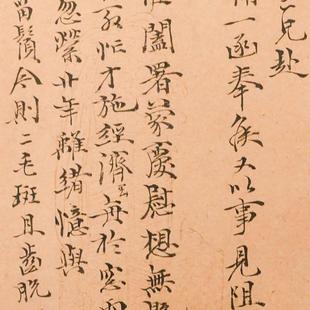 兄赴
一函奉候又以事見阻
闔署蒙慶慰想無
忙才施經濟
忽縈廿年離緒憶與
留鬚今則二毛斑且齒脫